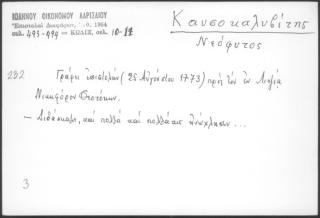 ΙΩΑΝΝΟΥ ΟΙΚΟΝΟΜΟΥ ΛΑΡΙΣΑΙΟΥ
Ἐπιστολαὶ Διαφόρων, 1964
σελ. 493-494 = ΚΩΔΙΞ, σελ. 10-11
Καυσοκαλυβίτης
Νεόφυτος
232
Γράφει ἐπιστολὴν (25 Αὐγούστου 1773) πρὸς τὸν ἐν Λειψίᾳ
Νικηφόρον Θεοτόκην.
– Διδάσκαλε, καὶ πολλὰ καὶ πολλάκις ἠνώχλησεν...
3